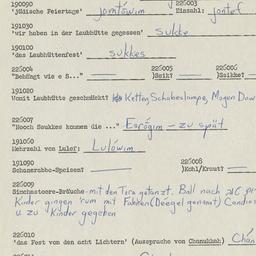 190090 226003
'jüdische Feiertage' jomtowim Einzahl: jontef
191030
'wir haben in der Laubhütte gegessen' sukke
190100
'das Laubhüttenfest' sukkes
226004 226005 226006
"Behängt wie e S..." )Seik? )Seikke?
191020
Womit Laubhütte geschmückt? Ketten, Schabeslampe, Mogen Dow
226007
"Hooch Sukkes kommen die ..." Esrōgim – zu spät
191060
Mehrzahl von Lulef: Lulowim
191090 226008
Schanerabbo-Speisen? )Kohl/Kraut?
226009
Simchastoore-Bräuche - mit den Tora getanzt. Ball nach
Kinder gingen 'rum mit Fahnen (Deegel genannt) Candies
u. zu Kinder gegeben
226010
'das Fest von den acht Lichtern' (Aussprache von Chanukkah) Chan